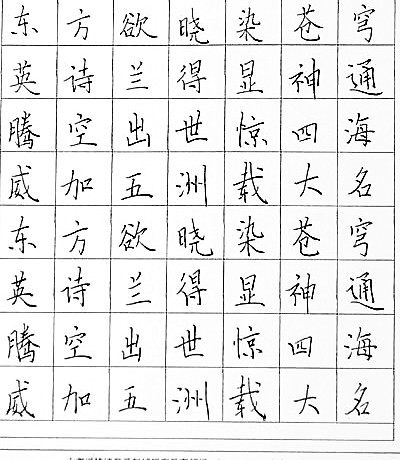 东方欲晓染苍穹
英诗兰得显神通
腾空出世惊四海
威加五洲载大名
东方欲晓染苍穹
英诗兰得显神通
腾空出世惊四海
威加五洲载大名